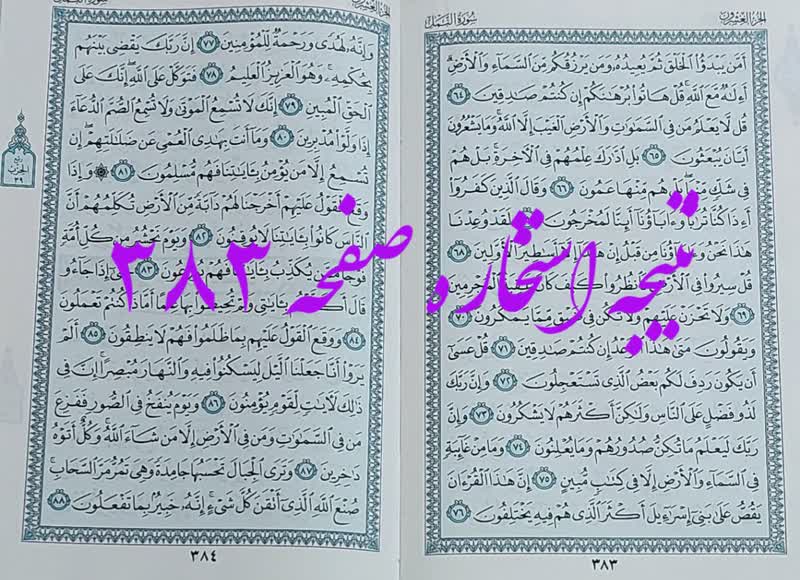 الجزء العشرون
سورة النمل
أَمَّن يَبْدَؤُا الْخَلْقَ ثُمَّ يُعِيدُهُ وَمَن يَرْزُقُكُم مِّنَ السَّمَاءِ وَالْأَرْضِ
أَءِلَٰهٌ مَّعَ اللَّهِ قُلْ هَاتُوا بُرْهَانَكُمْ إِن كُنتُمْ صَادِقِينَ ٦٤
قُل لَّا يَعْلَمُ مَن فِي السَّمَاوَاتِ وَالْأَرْضِ الْغَيْبَ إِلَّا اللَّهُ وَمَا يَشْعُرُونَ
أَيَّانَ يُبْعَثُونَ ٦٥ بَلِ ادَّارَكَ عِلْمُهُمْ فِي الْآخِرَةِ بَلْ هُمْ
فِي شَكٍّ مِّنْهَا بَلْ هُم مِّنْهَا عَمُونَ ٦٦ وَقَالَ الَّذِينَ كَفَرُوا
أَءِذَا كُنَّا تُرَابًا وَءَابَاؤُنَا أَئِنَّا لَمُخْرَجُونَ لَقَدْ وُعِدْنَا
هَٰذَا نَحْنُ وَءَابَاؤُنَا مِن قَبْلُ إِنْ هَٰذَا إِلَّا أَسَاطِيرُ الْأَوَّلِينَ ٦٨
قُلْ سِيرُوا فِي الْأَرْضِ فَانظُرُوا كَيْفَ كَانَ عَاقِبَةُ الْمُجْرِمِينَ
٦٩ وَلَا تَحْزَنْ عَلَيْهِمْ وَلَا تَكُن فِي ضَيْقٍ مِّمَّا يَمْكُرُونَ ٧٠
وَيَقُولُونَ مَتَىٰ هَٰذَا الْوَعْدُ إِن كُنتُمْ صَادِقِينَ ٧١ قُلْ عَسَىٰ
أَن يَكُونَ رَدِفَ لَكُم بَعْضُ الَّذِي تَسْتَعْجِلُونَ ٧٢ وَإِنَّ رَبَّكَ
لَذُو فَضْلٍ عَلَى النَّاسِ وَلَٰكِنَّ أَكْثَرَهُمْ لَا يَشْكُرُونَ ٧٣ وَإِنَّ
رَبَّكَ لَيَعْلَمُ مَا تُكِنُّ صُدُورُهُمْ وَمَا يُعْلِنُونَ ٧٤ وَمَا مِنْ غَائِبَةٍ
فِي السَّمَاءِ وَالْأَرْضِ إِلَّا فِي كِتَابٍ مُّبِينٍ ٧٥ إِنَّ هَٰذَا الْقُرْءَانَ
يَقُصُّ عَلَىٰ بَنِي إِسْرَاءِيلَ أَكْثَرَ الَّذِي هُمْ فِيهِ يَخْتَلِفُونَ ٧٦
٣٨٣
نتیجه استخاره صفحه ۳۸۳
الجزء العشرون
سورة النمل
وَإِنَّهُ لَهُدًى وَرَحْمَةٌ لِّلْمُؤْمِنِينَ ٧٧ إِنَّ رَبَّكَ يَقْضِي بَيْنَهُم
بِحُكْمِهِ وَهُوَ الْعَزِيزُ الْعَلِيمُ ٧٨ فَتَوَكَّلْ عَلَى اللَّهِ إِنَّكَ عَلَى
الْحَقِّ الْمُبِينِ ٧٩ إِنَّكَ لَا تُسْمِعُ الْمَوْتَىٰ وَلَا تُسْمِعُ الصُّمَّ الدُّعَاءَ
إِذَا وَلَّوْا مُدْبِرِينَ ٨٠ وَمَا أَنتَ بِهَادِي الْعُمْيِ عَن ضَلَالَتِهِمْ إِن
تُسْمِعُ إِلَّا مَن يُؤْمِنُ بِءَايَاتِنَا فَهُم مُّسْلِمُونَ ٨١ ۞ وَإِذَا
وَقَعَ الْقَوْلُ عَلَيْهِمْ أَخْرَجْنَا لَهُمْ دَابَّةً مِّنَ الْأَرْضِ تُكَلِّمُهُمْ أَنَّ
النَّاسَ كَانُوا بِءَايَاتِنَا لَا يُوقِنُونَ ٨٢ وَيَوْمَ نَحْشُرُ مِن كُلِّ أُمَّةٍ
فَوْجًا مِّمَّن يُكَذِّبُ بِءَايَاتِنَا فَهُمْ يُوزَعُونَ ٨٣ حَتَّىٰ إِذَا جَاءُو
قَالَ أَكَذَّبْتُم بِءَايَاتِي وَلَمْ تُحِيطُوا بِهَا عِلْمًا أَمَّاذَا كُنتُمْ تَعْمَلُونَ
٨٤ وَوَقَعَ الْقَوْلُ عَلَيْهِم بِمَا ظَلَمُوا فَهُمْ لَا يَنطِقُونَ ٨٥ أَلَمْ
يَرَوْا أَنَّا جَعَلْنَا الَّيْلَ لِيَسْكُنُوا فِيهِ وَالنَّهَارَ مُبْصِرًا إِنَّ فِي
ذَٰلِكَ لَآيَاتٍ لِّقَوْمٍ يُؤْمِنُونَ ٨٦ وَيَوْمَ يُنفَخُ فِي الصُّورِ فَفَزِعَ
مَن فِي السَّمَاوَاتِ وَمَن فِي الْأَرْضِ إِلَّا مَن شَاءَ اللَّهُ وَكُلٌّ أَتَوْهُ
دَاخِرِينَ ٨٧ وَتَرَى الْجِبَالَ تَحْسَبُهَا جَامِدَةً وَهِيَ تَمُرُّ مَرَّ السَّحَابِ
صُنْعَ اللَّهِ الَّذِي أَتْقَنَ كُلَّ شَيْءٍ إِنَّهُ خَبِيرٌ بِمَا تَفْعَلُونَ ٨٨
٣٨٤
ربع
الحزب
٣٩